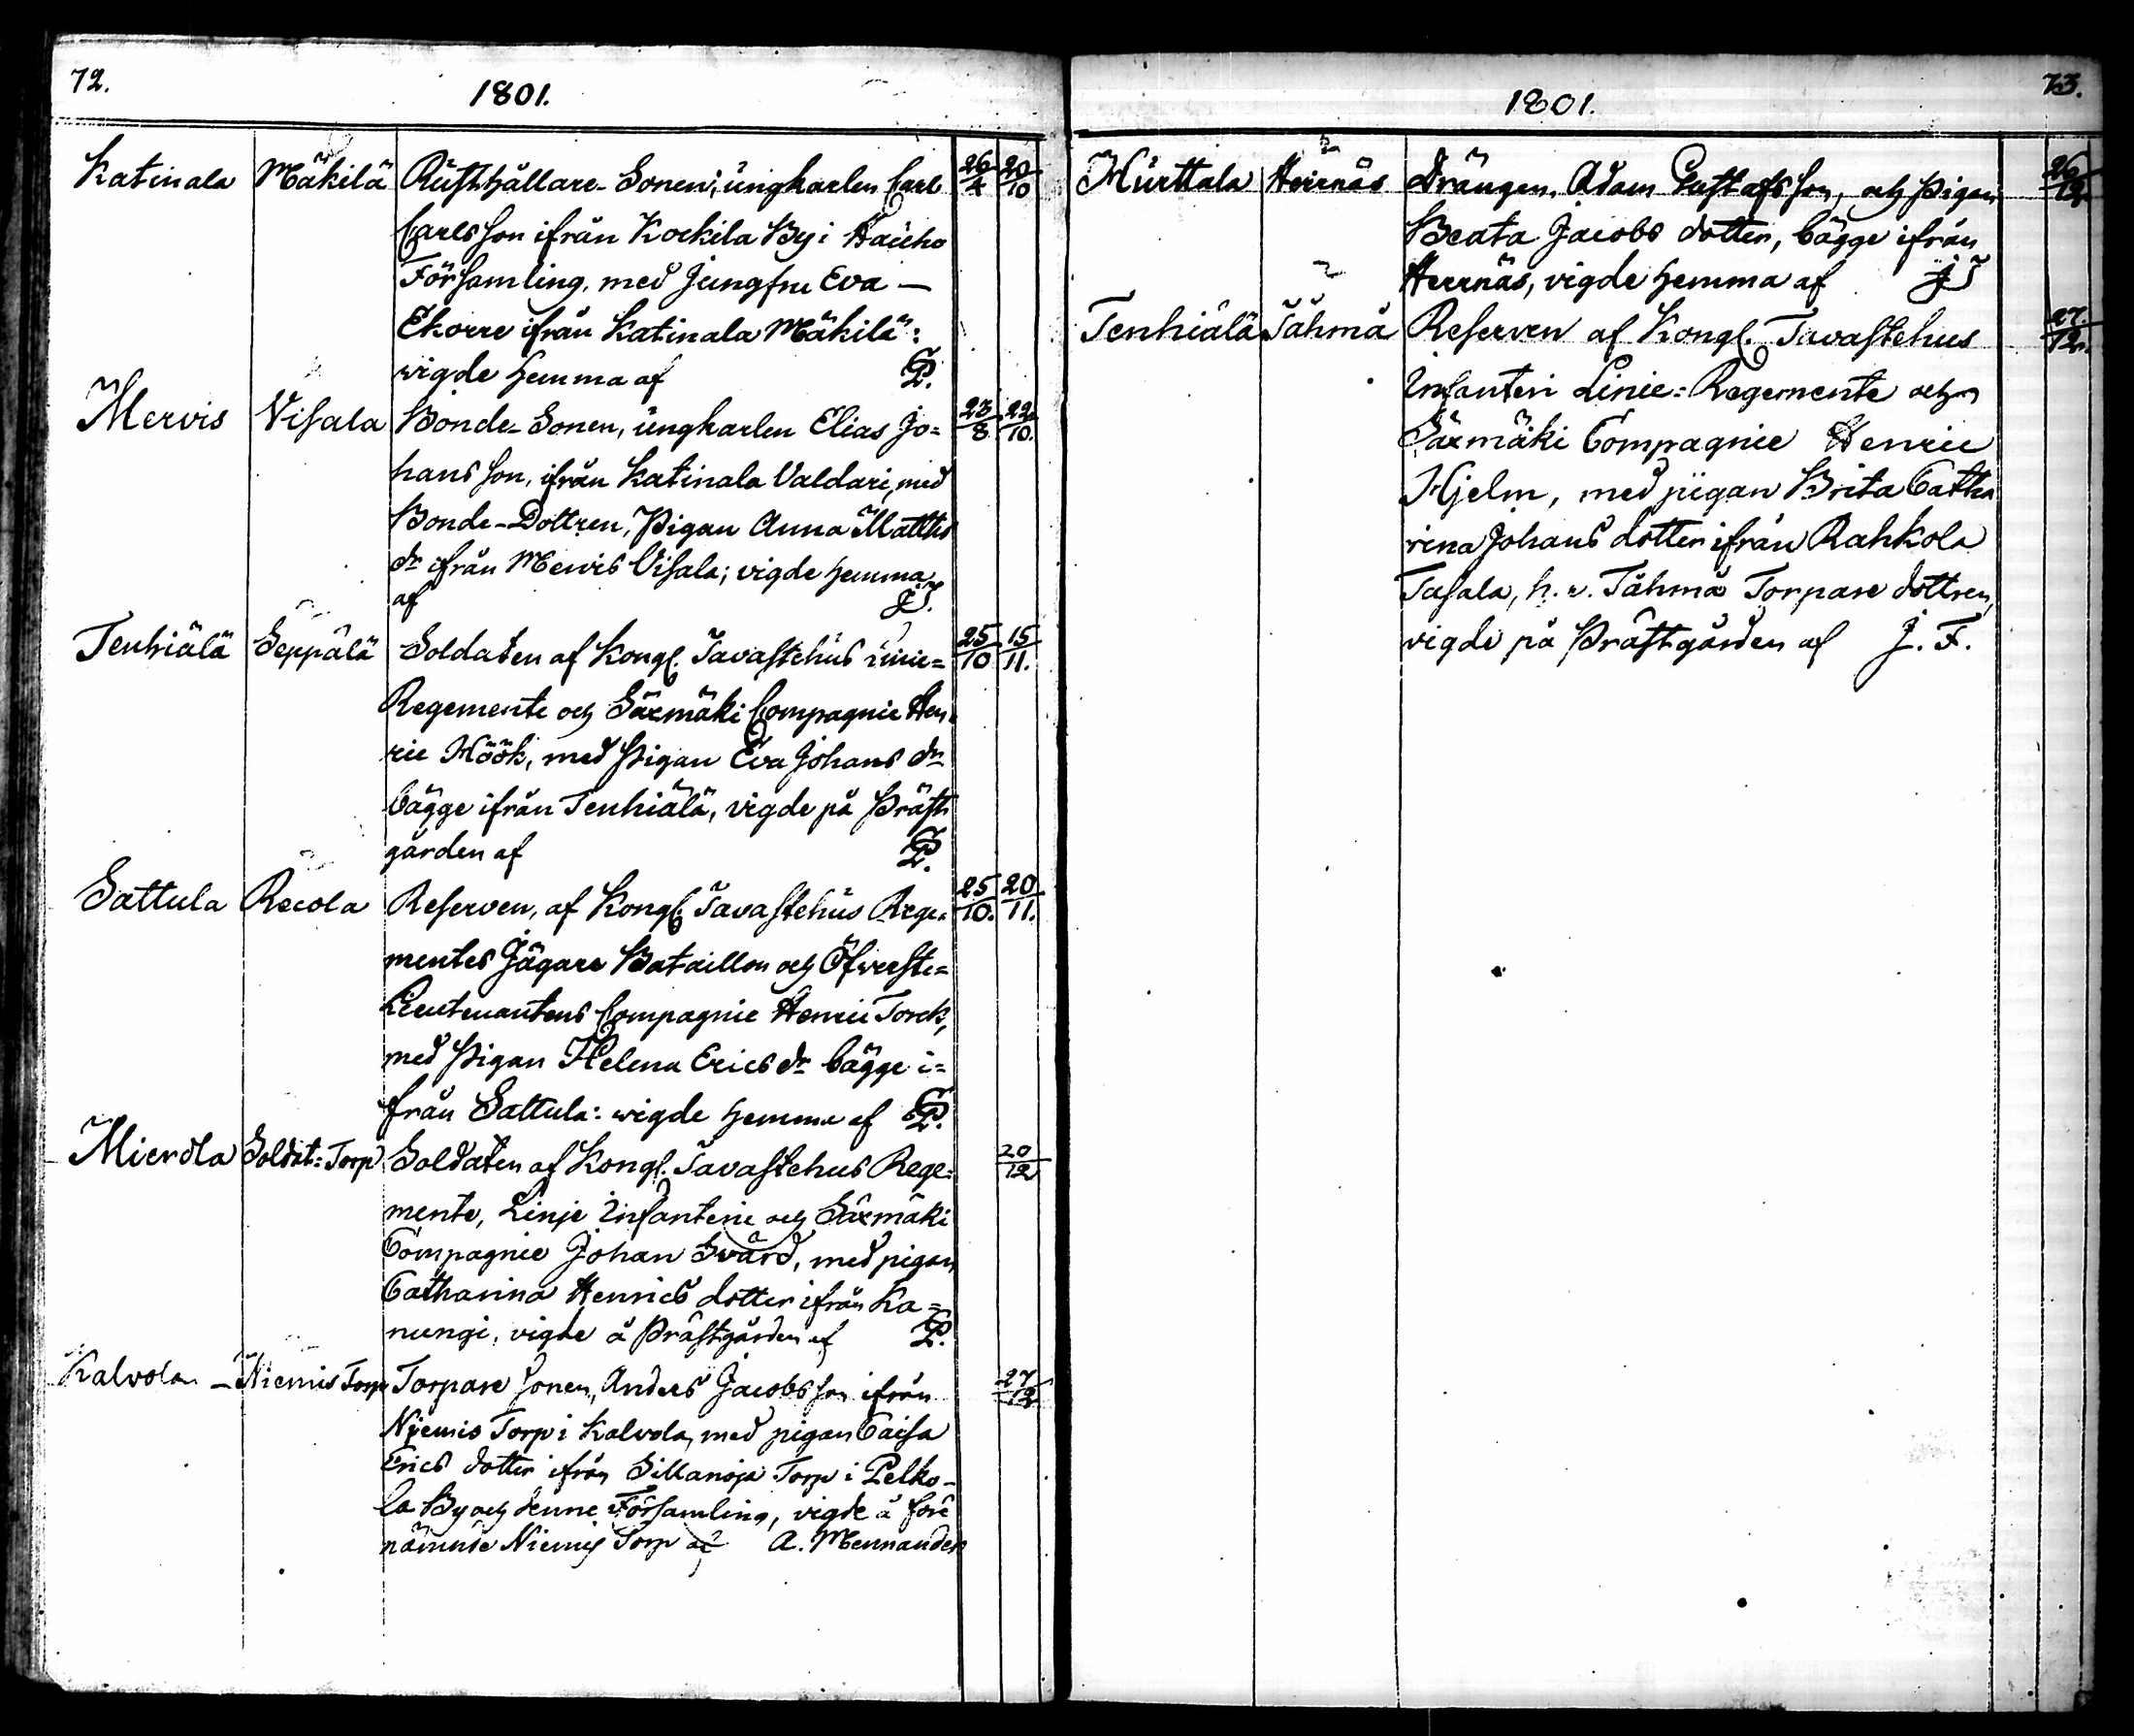 72.
1801.
Katinala Mäkilä Rusthållare-Sonen, ungkarlen Carl 26/4 20/10
Carlsson ifrån Kockila By i Hauho
Församling, med Jungfru Eva —
Ekorre ifrån Katinala Mäkilä:
wigde hemma af
Mervis Visala Bonde-Sonen, ungkarlen Elias Jo= 23/8 22/10.
hansson, ifrån Katinala Valdari, med
Bonde-Dottren, Pigan Anna Matths
dr ifrån Mervis Visala; vigde hemma
af
Tenhiälä Seppälä Soldaten af Kongl. Tavastehus Linie= 25/10 15/11.
Regemente och Säxmäki Compagnie Hen=
ric Höök, med Pigan Eva Johans dr
bägge ifrån Tenhiälä, vigde på Präst
gården af
Sattula Recola Reserven, af Kongl. Tavastehus Rege= 25/10. 20/11.
mentes Jägare Bataillon och Öfverste=
Lieutenantens Compagnie Henric Torck,
med Pigan Helena Erics dr bägge i=
från Sattula: wigde hemma af
Mierola Soldat=Torp Soldaten af Kongl. Tavastehus Rege= 20/12
mente, Linje Infanterie och Säxmäki
Compagnie Johan Svärd, med pigan
Catharina Henrics dotter ifrån Ka=
nungi, vigde å Prästgården af
Kalvola — Niemis Torp Torpare Sonen, Anders Jacobsson ifrån 27/12
Niemis Torp i Kalvola, med pigan Caisa
Erics dotter ifrån Sillanoja Torp i Pelko-
la By och denne Församling, vigde å före
nämnde Niemis Torp af A. Mennander
73.
1801.
Hurttala Herrnäs Drängen, Adam Gustafsson, och Pigan 26/12
Beata Jacobs dotter, bägge ifrån
Herrnäs, vigde hemma af
Tenhiälä Tähmä Reserven af Kongl. Tavastehus 27/12.
Infanteri Linie=Regemente och
Säxmäki Compagnie Henric
Hjelm, med pigan Brita Catha
rina Johans dotter ifrån Rahkola
Tasala, h. v. Tähmä Torpare dottren,
vigde på Prästgården af J. F.